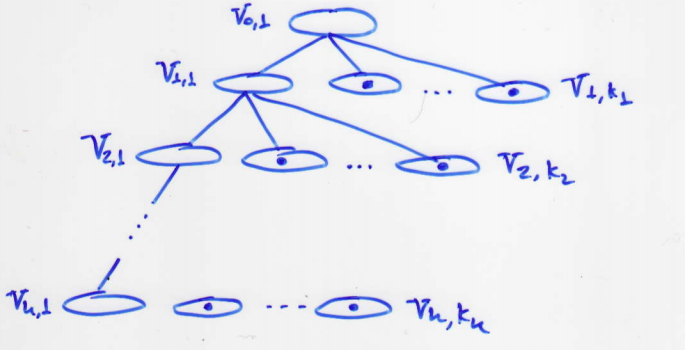 V0,1
V1,1 ... V1,k1
V2,1 ... V2,k2
Vn,1 ... Vn,kn